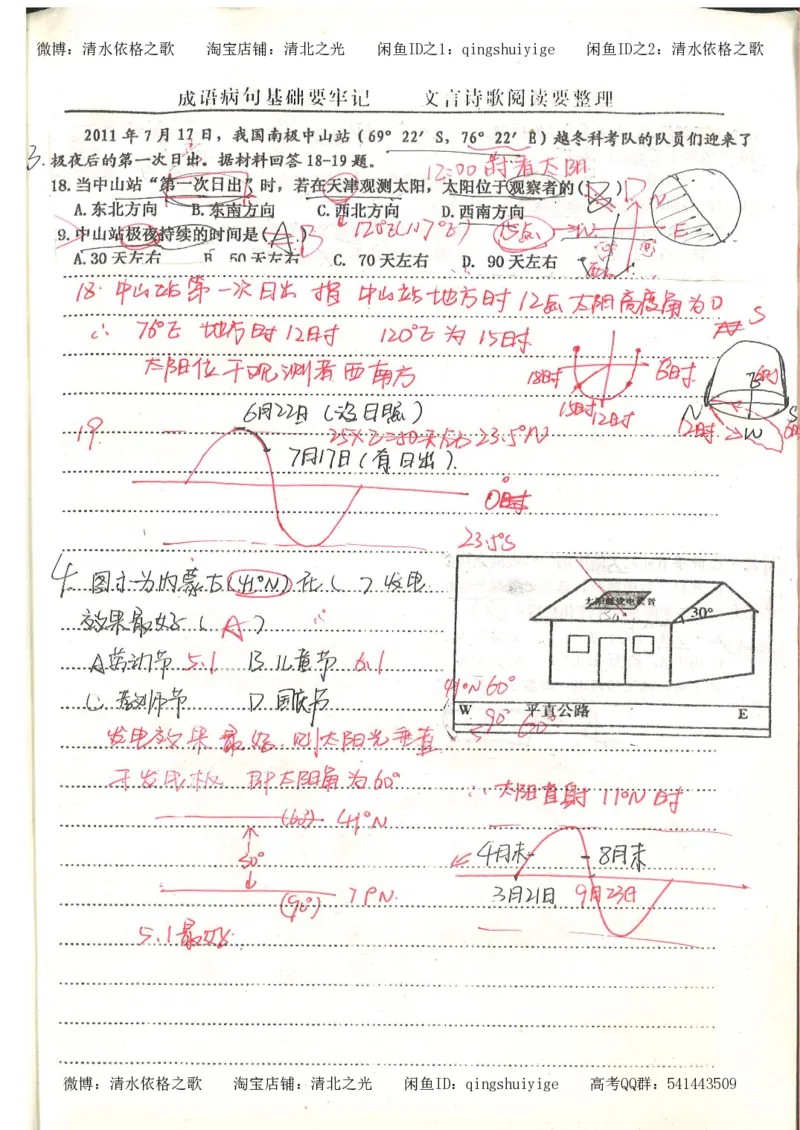 微博：清水依格之歌 淘宝店铺：清北之光 闲鱼ID之1：qingshuiyige 闲鱼ID之2：清水依格之歌
成语病句基础要牢记 文言诗歌阅读要整理
2011年7月17日，我国南极中山站（69° 22′ S，76° 22′ E）越冬科考队的队员们迎来了
3. 极夜后的第一次日出。据材料回答18-19题。
12:00时看太阳
18.当中山站“第一次日出”时，若在天津观测太阳，太阳位于观察者的（ D ）
A.东北方向 B.东南方向 C.西北方向 D.西南方向
N
9.中山站极夜持续的时间是（ A ） B 120°E(117°E) W E
A.30天左右 B. 50天左右 C. 70天左右 D. 90天左右
18. 中山站第一次日出 指 中山站地方时12点 太阳高度角为0
∴ 76°E 地方时12时 120°E为15时
太阳位于观测者西南方
18时 6时 15时 12时
S N W S 12时
6月22日（没日照）
19. 25×2=50天左右 23.5°N
7月17日（有日出）.
0°
23.5°S
4. 图示为内蒙古(41°N)在( )发电
效果最好（ A ）
A劳动节 5.1 B.儿童节 6.1
C. 教师节 D.国庆节
太阳能发电装置
30°
41°N 60°
W 平直公路 E
90° 60°
发电效果最好 则太阳光垂直
于发电板 即太阳角为60°
∴太阳直射11°N时
(60°) 41°N
30°
4月末 8月末
3月21日 9月23日
(90°) 11°N.
5.1最好.
微博：清水依格之歌 淘宝店铺：清北之光 闲鱼ID：qingshuiyige 高考QQ群：541443509